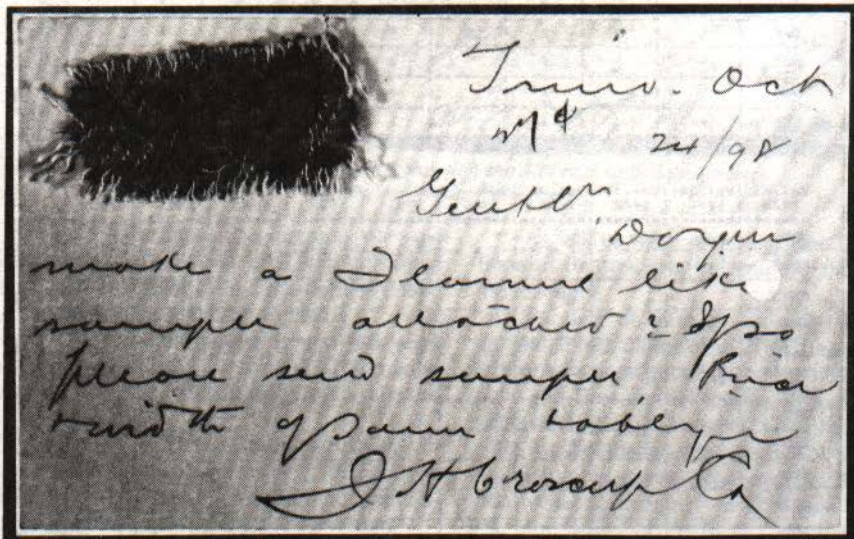 Truro. Oct
24/98
Gentln
Do you
make a Flannel like
sample attached? If so
please send sample Price
+ width of same + oblige
J H Croscup